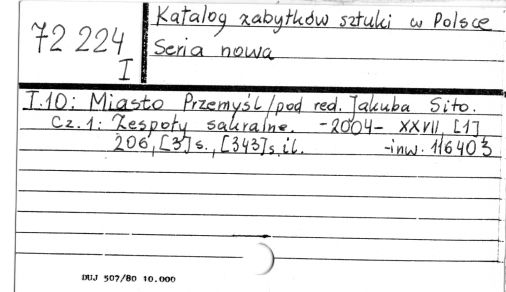 72 224
I
Katalog zabytków sztuki w Polsce
Seria nowa
T.10: Miasto Przemyśl/pod red. Jakuba Sito.
Cz.1: Zespoły sakralne. -2004- XXVII, [1]
206, [3] s., [343] s. il. -inw. 116403
DUJ 507/80 10.000